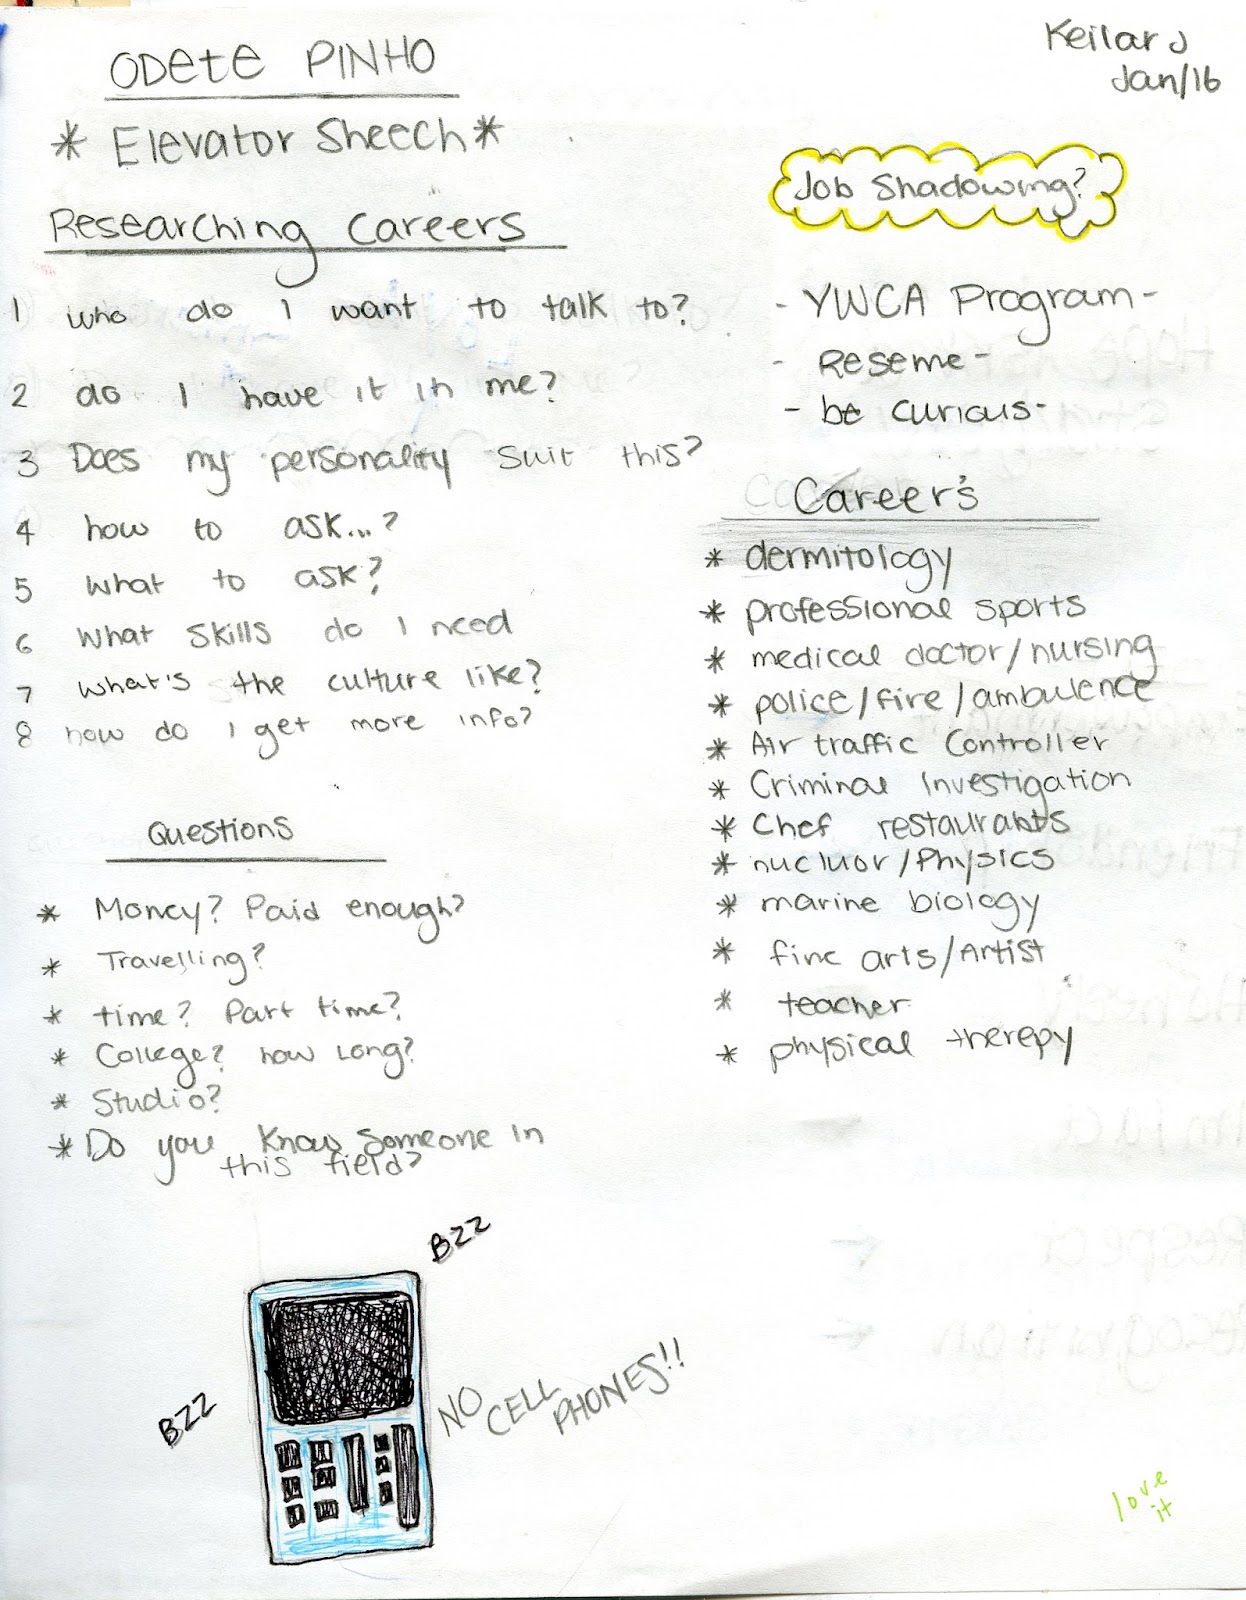 ODete PINHO
* Elevator Sheech *
Researching Careers
1 who do I want to talk to?
2 do I have it in me?
3 Does my personality suit this?
4 how to ask...?
5 what to ask?
6 what skills do I need
7 what's the culture like?
8 how do I get more info?
Questions
* Money? Paid enough?
* Travelling?
* time? Part time?
* College? how long?
* Studio?
* Do you know someone in
this field?
BZZ
BZZ
NO CELL PHONES!!
Keilar J
Jan/16
Job Shadowing?
- YWCA Program -
- Reseme -
- be curious -
Career's
* dermitology
* professional sports
* medical doctor/nursing
* police/fire/ambulence
* Air traffic Controller
* Criminal Investigation
* Chef restaurants
* nucluor/Physics
* marine biology
* fine arts/Artist
* teacher
* physical therepy
love
it